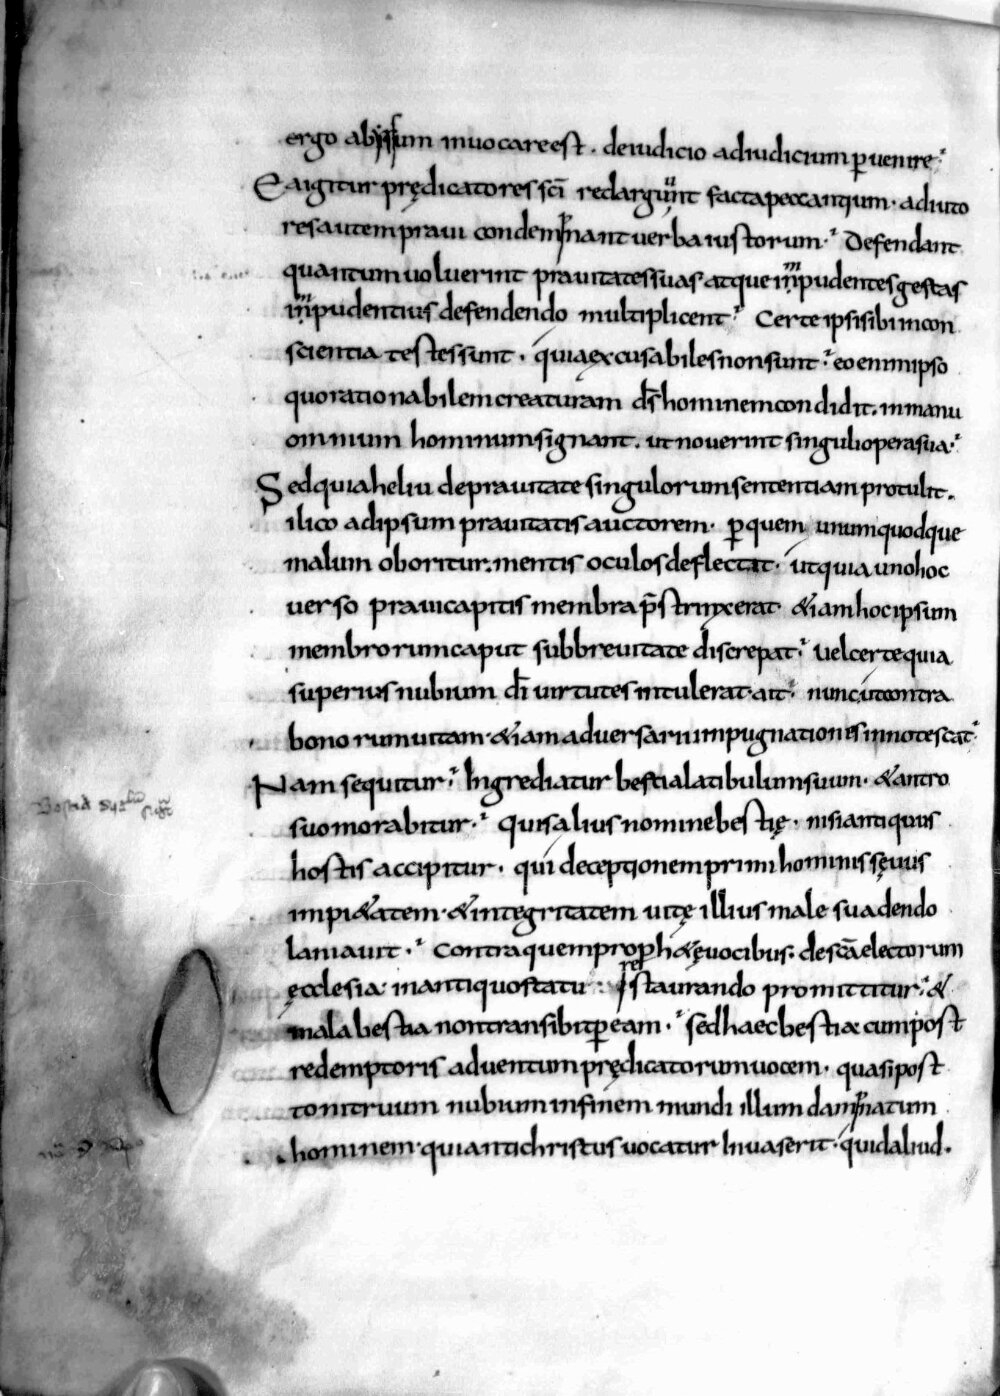 ergo abyssum inuocare est . de iudicio ad iudicium ꝑuenire ;
Ea igitur prędicatores sc̄i redarguunt facta peccantium · aduto
res autem praui condempnant uerba iustorum ; Defendant
quantum uoluerint prauitates suas atque impudentes gestas
impudentius defendendo multiplicent ; Certe ipsi sibi in con
scientia testes sunt . quia excusabiles non sunt ; eo enim ipso
quo rationabilem creaturam ds̄ hominem condidit . in manu
omnium hominum signant . ut nouerint singuli opera sua ;
Sed quia heliu de prauitate singulorum sententiam protulit .
ilico ad ipsum prauitatis auctorem · ꝑ quem unumquodque
malum oboritur . mentis oculos deflectat · ut quia uno hoc
uerso praui capitis membra p̄strinxerat · & iam hoc ipsum
membrorum caput sub breuitate discrepat ; uel certe quia
superius nubium dī uirtutes intulerat · ait ; nunc ut contra
bonorum uitam · &iam aduersarii impugnationes innotescat ;
Nam sequitur ; Ingrediatur bestia latibulum suum · & antro
suo morabitur ; quis alius nomine bestię · nisi antiquus
hostis accipitur . qui deceptionem primi hominis sęuus
impi&atem · & integritatem uitę illius male suadendo
laniauit ; Contra quem proph&ę uocibus · de sc̄a electorum
ęcclesia · in antiquo statu restaurando promittitur ; &
mala bestia non transibit ꝑ eam ; sed haec bestia cum post
redemptoris aduentum prędicatorum uocem · quasi post
tonitruum nubium in finem mundi illum dampnatum
hominem · qui antichristus uocatur Inuaserit · quid aliud .